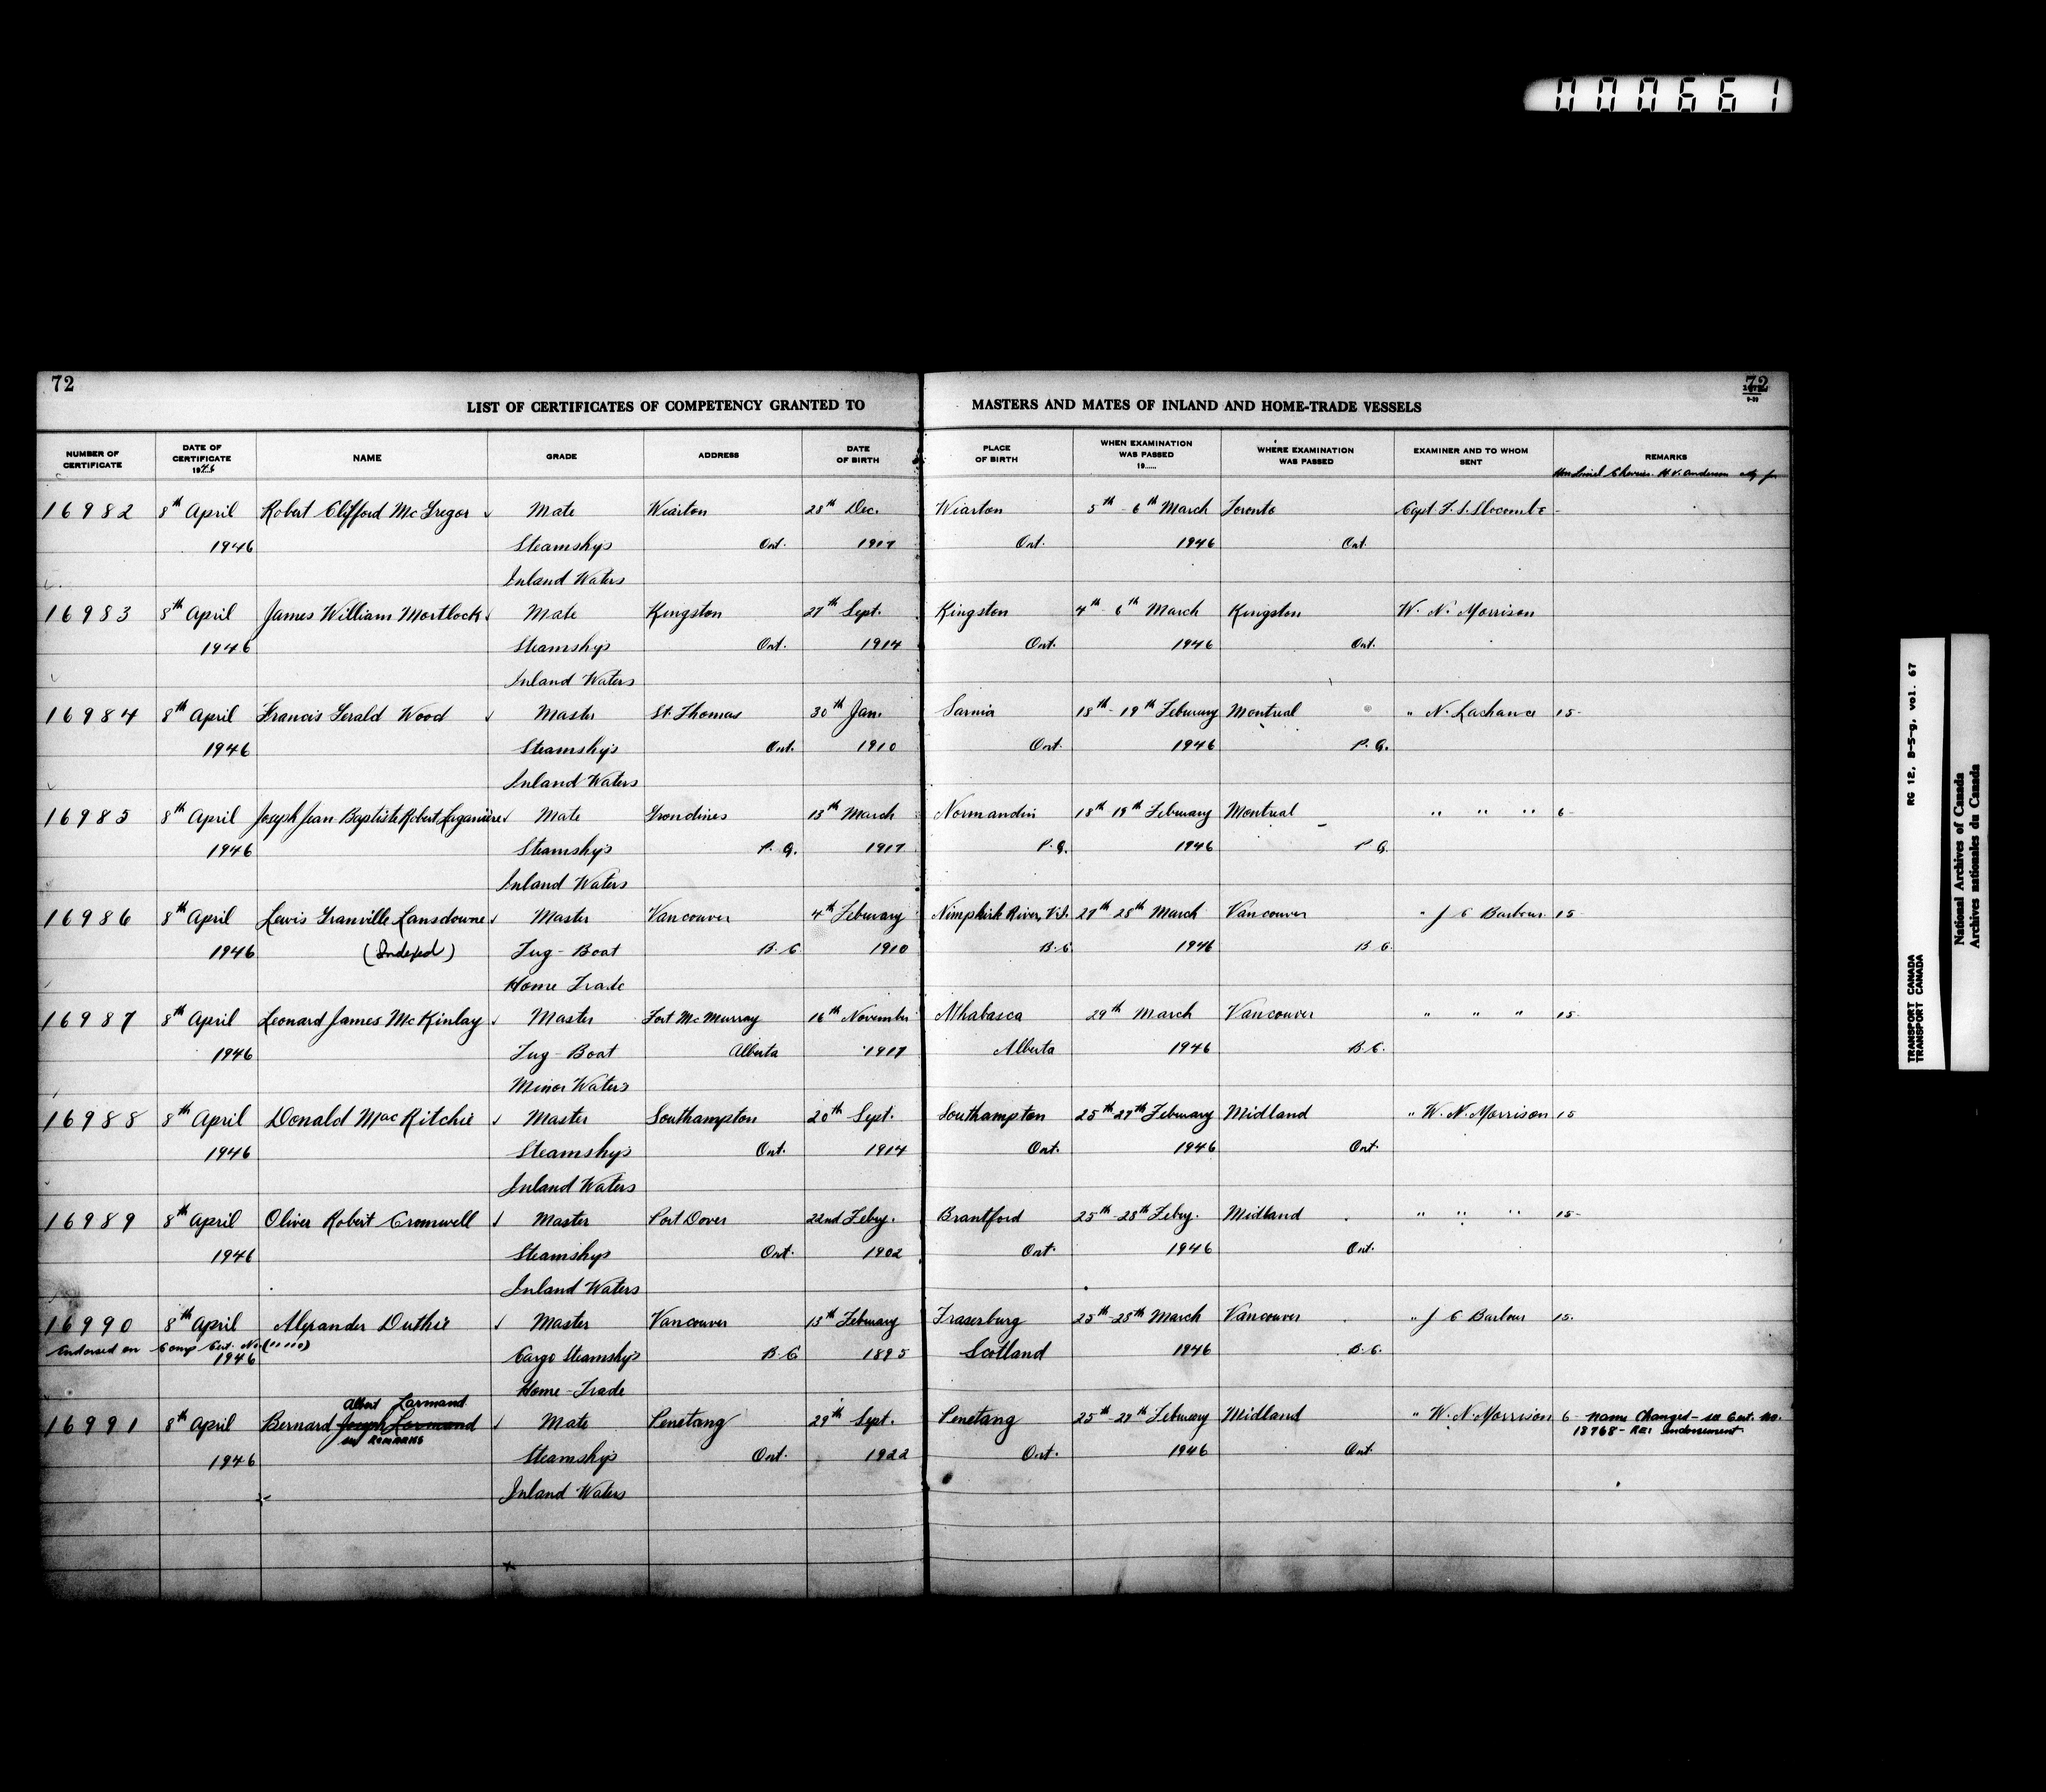 000661
72
72
LIST OF CERTIFICATES OF COMPETENCY GRANTED TO MASTERS AND MATES OF INLAND AND HOME-TRADE VESSELS
NUMBER OF CERTIFICATE DATE OF CERTIFICATE 1946 NAME GRADE ADDRESS DATE OF BIRTH PLACE OF BIRTH WHEN EXAMINATION WAS PASSED 19...... WHERE EXAMINATION WAS PASSED EXAMINER AND TO WHOM SENT REMARKS
Hon Lionel Chevrier. H.V. Anderson
16982 8th April Robert Clifford McGregor Mate Wiarton 28th Dec. Wiarton 5th - 6th March Toronto Capt. Slocombe
1946 Steamships Ont. 1917 Ont. 1946 Ont
Inland Waters
16983 8th April James William Mortlock Mate Kingston 27th Sept. Kingston 4th 6th March Kingston W. N. Morrison
1946 Steamships Ont. 1914 Ont. 1946 Ont.
Inland Waters
16984 8th April Francis Gerald Wood Master St. Thomas 30th Jan. Sarnia 18th - 19th Feburary Montreal " N. Lachance 15-
1946 Steamships Ont. 1910 Ont. 1946 P.Q.
Inland Waters
16985 8th April Joseph Jean Baptiste Robert Laganière Mate Grondines 13th March Normandin 18th 19th Feburary Montreal " " " 6-
1946 Steamships P.Q. 1917 P.Q. 1946 P Q.
Inland Waters
16986 8th April Lewis Granville Lansdowne Master Vancouver 4th Feburary Nimpkish River, V.I. 27th 28th March Vancouver " J C Barbour 15
1946 (Indexed) Tug-Boat B.C. 1910 B.C. 1946 B C.
Home Trade
16987 8th April Leonard James McKinlay Master Fort McMurray 16th November Athabasca 29th March Vancouver " " " 15-
1946 Tug-Boat Alberta 1917 Alberta 1946 B.C.
Minor Waters
16988 8th April Donald MacRitchie Master Southampton 20th Sept. Southampton 25th 27th Feburary Midland " W. N. Morrison 15
1946 Steamships Ont. 1914 Ont. 1946 Ont.
Inland Waters
16989 8th April Oliver Robert Cromwell Master Port Dover 22nd Feby. Brantford 25th-28th Feby. Midland " " " 15-
1946 Steamships Ont. 1902 Ont. 1946 Ont.
Inland Waters
16990 8th April Alexander Duthie Master Vancouver 13th Feburary Fraserburg 25th-28th March Vancouver " J C Barbour 15.
Endorsed on Comp Cert. No. (" " " ")
1946 Cargo Steamships B.C 1895 Scotland 1946 B.C.
Home-Trade
Albert Larmand
16991 8th April Bernard Joseph Larmand Mate Penetang 29th Sept. Penetang 25th-27th Feburary Midland " W. N. Morrison 6- Name Changed - see Cert. No.
see REMARKS 18768 - RE: Endorsement
1946 Steamships Ont. 1922 Ont. 1946 Ont
Inland Waters
RG 12, B-5-g, vol. 67
TRANSPORT CANADA
TRANSPORT CANADA
National Archives of Canada
Archives nationales du Canada